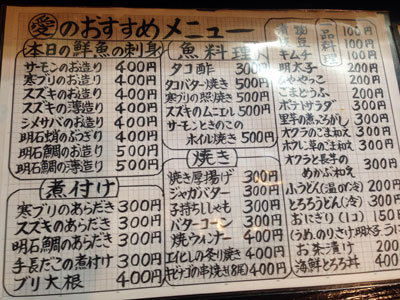 愛のおすすめメニュー
本日の鮮魚の刺身
サーモンのお造り 400円
寒ブリのお造り 400円
スズキのお造り 400円
スズキの薄造り 400円
シメサバのお造り 400円
明石蛸のぶつぎり 400円
明石鯛のお造り 500円
明石鯛の薄造り 500円
煮付け
寒ブリのあらだき 300円
スズキのあらだき 300円
明石鯛のあらだき 300円
手長だこの煮付け 300円
ブリ大根 400円
魚料理
タコ酢 300円
タコバター焼き 500円
寒ブリの照焼き 500円
スズキのムニエル 500円
サーモンときのこの
ホイル焼き 500円
焼き
焼き厚揚げ 300円
ジャガバター 300円
子持ちししゃも 300円
バターコーン 300円
焼ウィンナー 400円
エイヒレの炙り焼き 400円
400円
一品料理
漬物 100円
100円
キムチ 100円
明太子 200円
ひややっこ 200円
ごまとうふ 200円
ポテトサラダ 300円
里芋の煮ころがし 300円
オクラのごま和え 300円
ホウレン草のごま和え 300円
オクラと長芋の
めかぶ和え 300円
ふうどん(温or冷) 350円
とろろうどん(冷) 300円
おにぎり(1コ) 150円
お茶漬け 200円
海鮮とろろ丼 400円